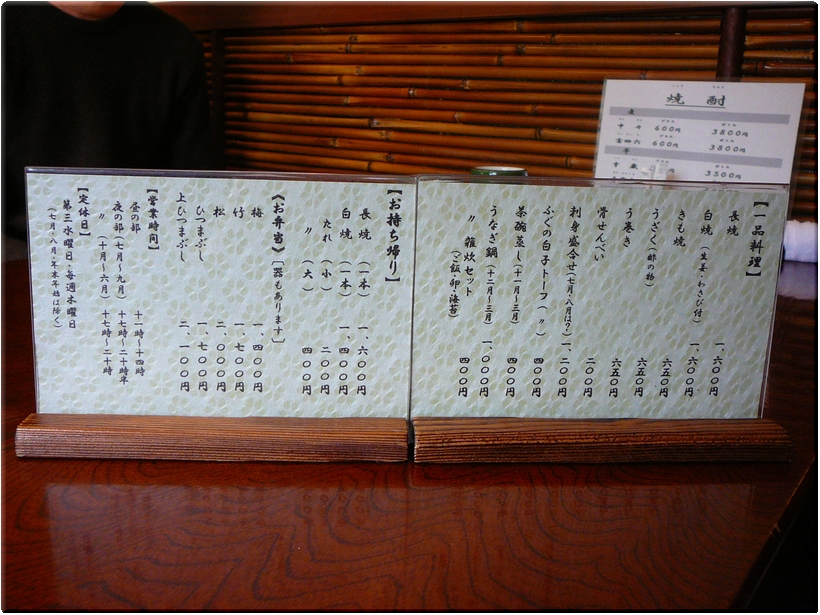 【一品料理】
長焼 一、六〇〇円
白焼(生姜・わさび付) 一、六〇〇円
きも焼 六五〇円
うざく(酢の物) 六五〇円
う巻き 六五〇円
骨せんべい 二〇〇円
刺身盛合せ(七月・八月は?) 一、二〇〇円
ふぐの白子トーフ(〃) 四〇〇円
茶碗蒸し(十一月~三月) 四〇〇円
うなぎ鍋(十二月~三月) 一、〇〇〇円
〃 雑炊セット 四〇〇円
(ご飯・卵・海苔)
【お持ち帰り】
長焼(一本) 一、六〇〇円
白焼(一本) 一、四〇〇円
たれ(小) 二〇〇円
〃(大) 四〇〇円
《お弁当》〔器もあります〕
梅 一、四〇〇円
竹 一、七〇〇円
松 二、〇〇〇円
ひつまぶし 一、七〇〇円
上ひつまぶし 二、一〇〇円
【営業時間】
昼の部 十一時~十四時
夜の部(七月~九月) 十七時~二十時半
〃(十月~六月) 十七時~二十時
【定休日】
第三水曜日・毎週木曜日
(七月・八月・年末年始は除く)
焼酎
600円 3800円
600円 3800円
3500円